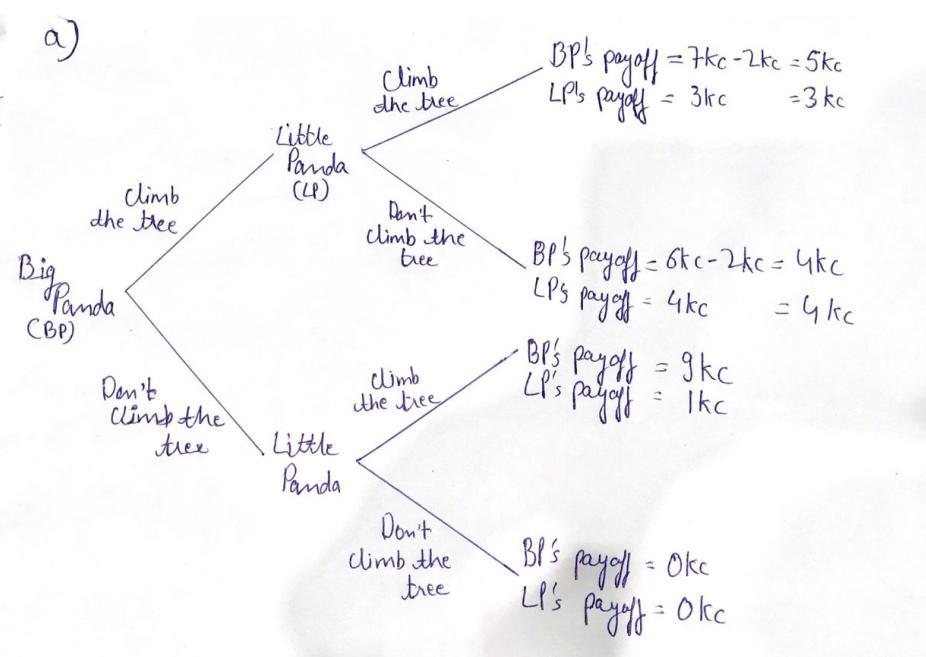 a)
BP's payoff = 7kc - 2kc = 5kc
LP's payoff = 3kc = 3kc
Climb
the tree
Little
Panda
(LP)
Climb
the tree
Don't
climb the
tree
BP's payoff = 6kc - 2kc = 4kc
LP's payoff = 4kc = 4kc
Big
Panda
(BP)
BP's payoff = 9kc
LP's payoff = 1kc
Climb
the tree
Don't
Climb the
tree
Little
Panda
Don't
climb the
tree
BP's payoff = 0kc
LP's payoff = 0kc